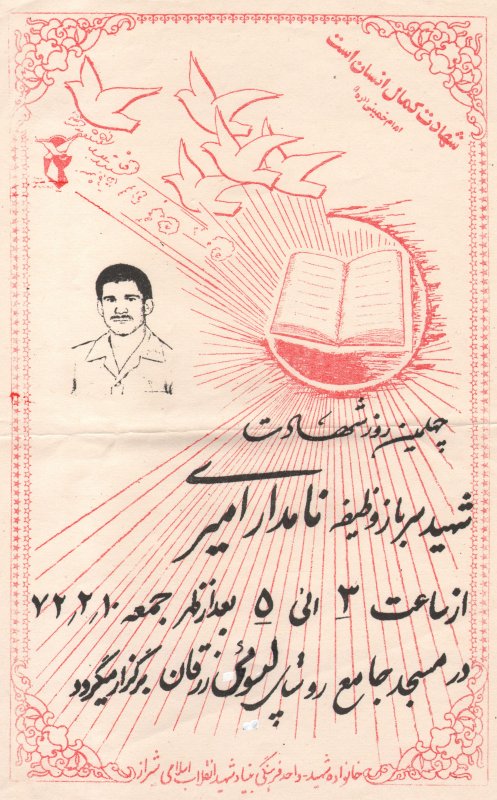 شهادت کمال انسان است
امام خمینی (ره)
چهلمین روز شهادت
شهید سرباز وظیفه نامدار امیری
از ساعت ۳ الی ۵ بعدازظهر جمعه ۷۲٫۲٫۱۰
در مسجد جامع روستای لپوئی زرقان برگزار میگردد
خانواده شهید - واحد فرهنگی بنیاد شهید انقلاب اسلامی شیراز